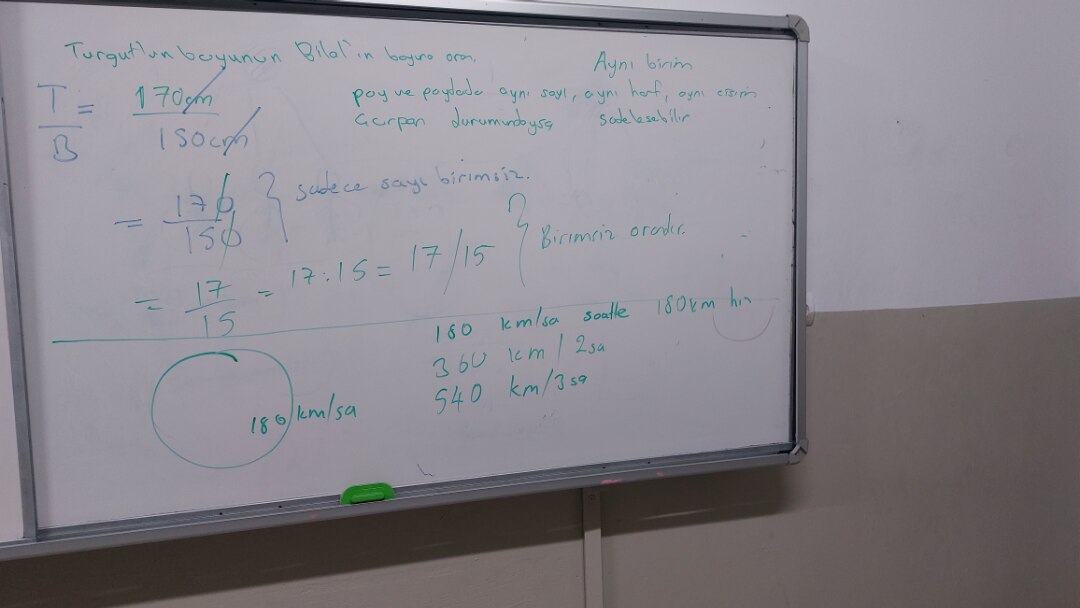 Turgut'un boyunun Bilal'in boyuna oranı.
Aynı birim
T/B = 170cm/150cm
pay ve paydada aynı sayı, aynı harf, aynı cisim
Çarpan durumundaysa sadeleşebilir
= 170/150 } sadece sayı birimsiz.
= 17/15 = 17:15 = 17/15 } Birimsiz orandır.
180 km/sa saatte 180km hız
360 km/2sa
540 km/3sa
180 km/sa